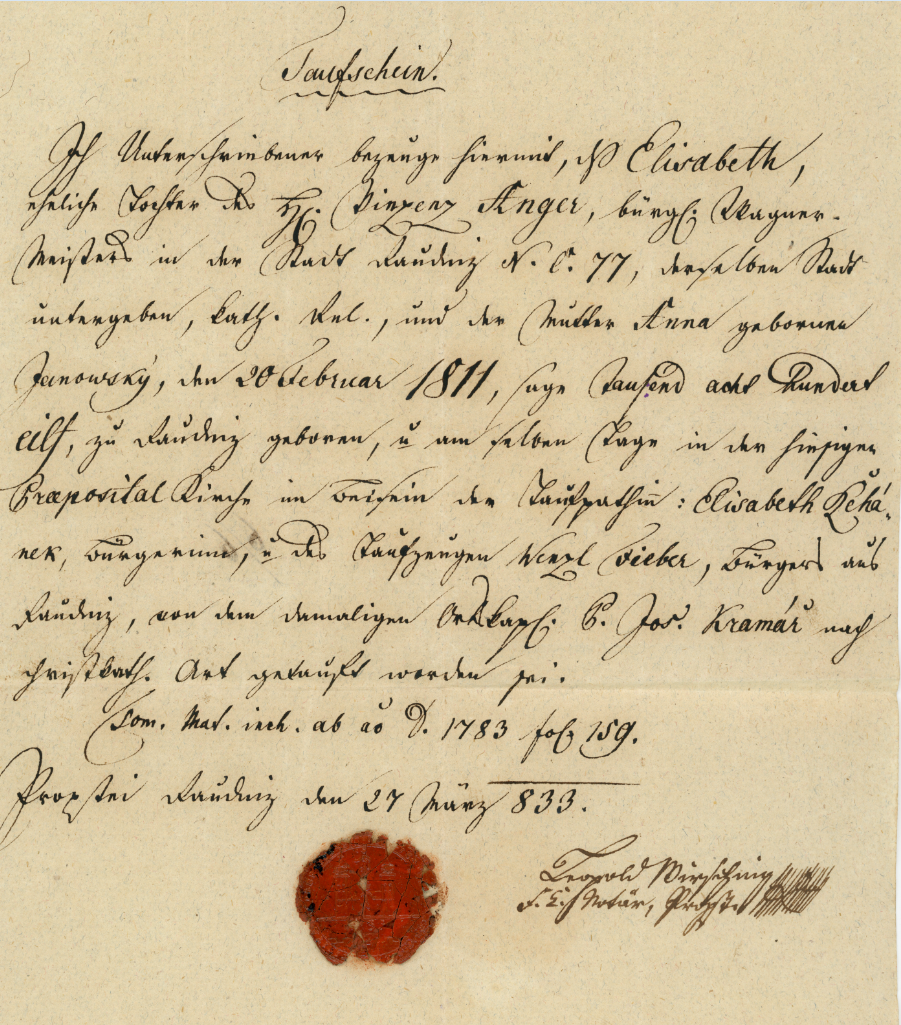 Taufschein.
Ich Unterschriebener bezeuge hiermit, daß Elisabeth,
eheliche Tochter des H. Vinzenz Anger, bürgl. Wagner-
Meisters in der Stadt Raudniz N. C. 77, derselben Stadt
untergeben, kath. Rel., und der Mutter Anna gebornen
Janowský, den 20 Februar 1811, sage Tausend acht Hundert
eilf, zu Raudniz geboren, u am selben Tage in der hiesigen
Præposital Kirche im Beisein der Taufpathin̄ : Elisabeth Ržehá-
nek, Bürgerinn, u des Taufzeugen Wenzl Fieber, Bürgers aus
Raudniz, von dem damaligen Ortskapl. P. Jos. Kramář nach
christkath. Art getauft worden sei.
Tom. Mat. inch. ab aō D. 1783 fol 159.
Propstei Raudniz den 27 März 833.
Leopold Wirsching
Notär, Propst